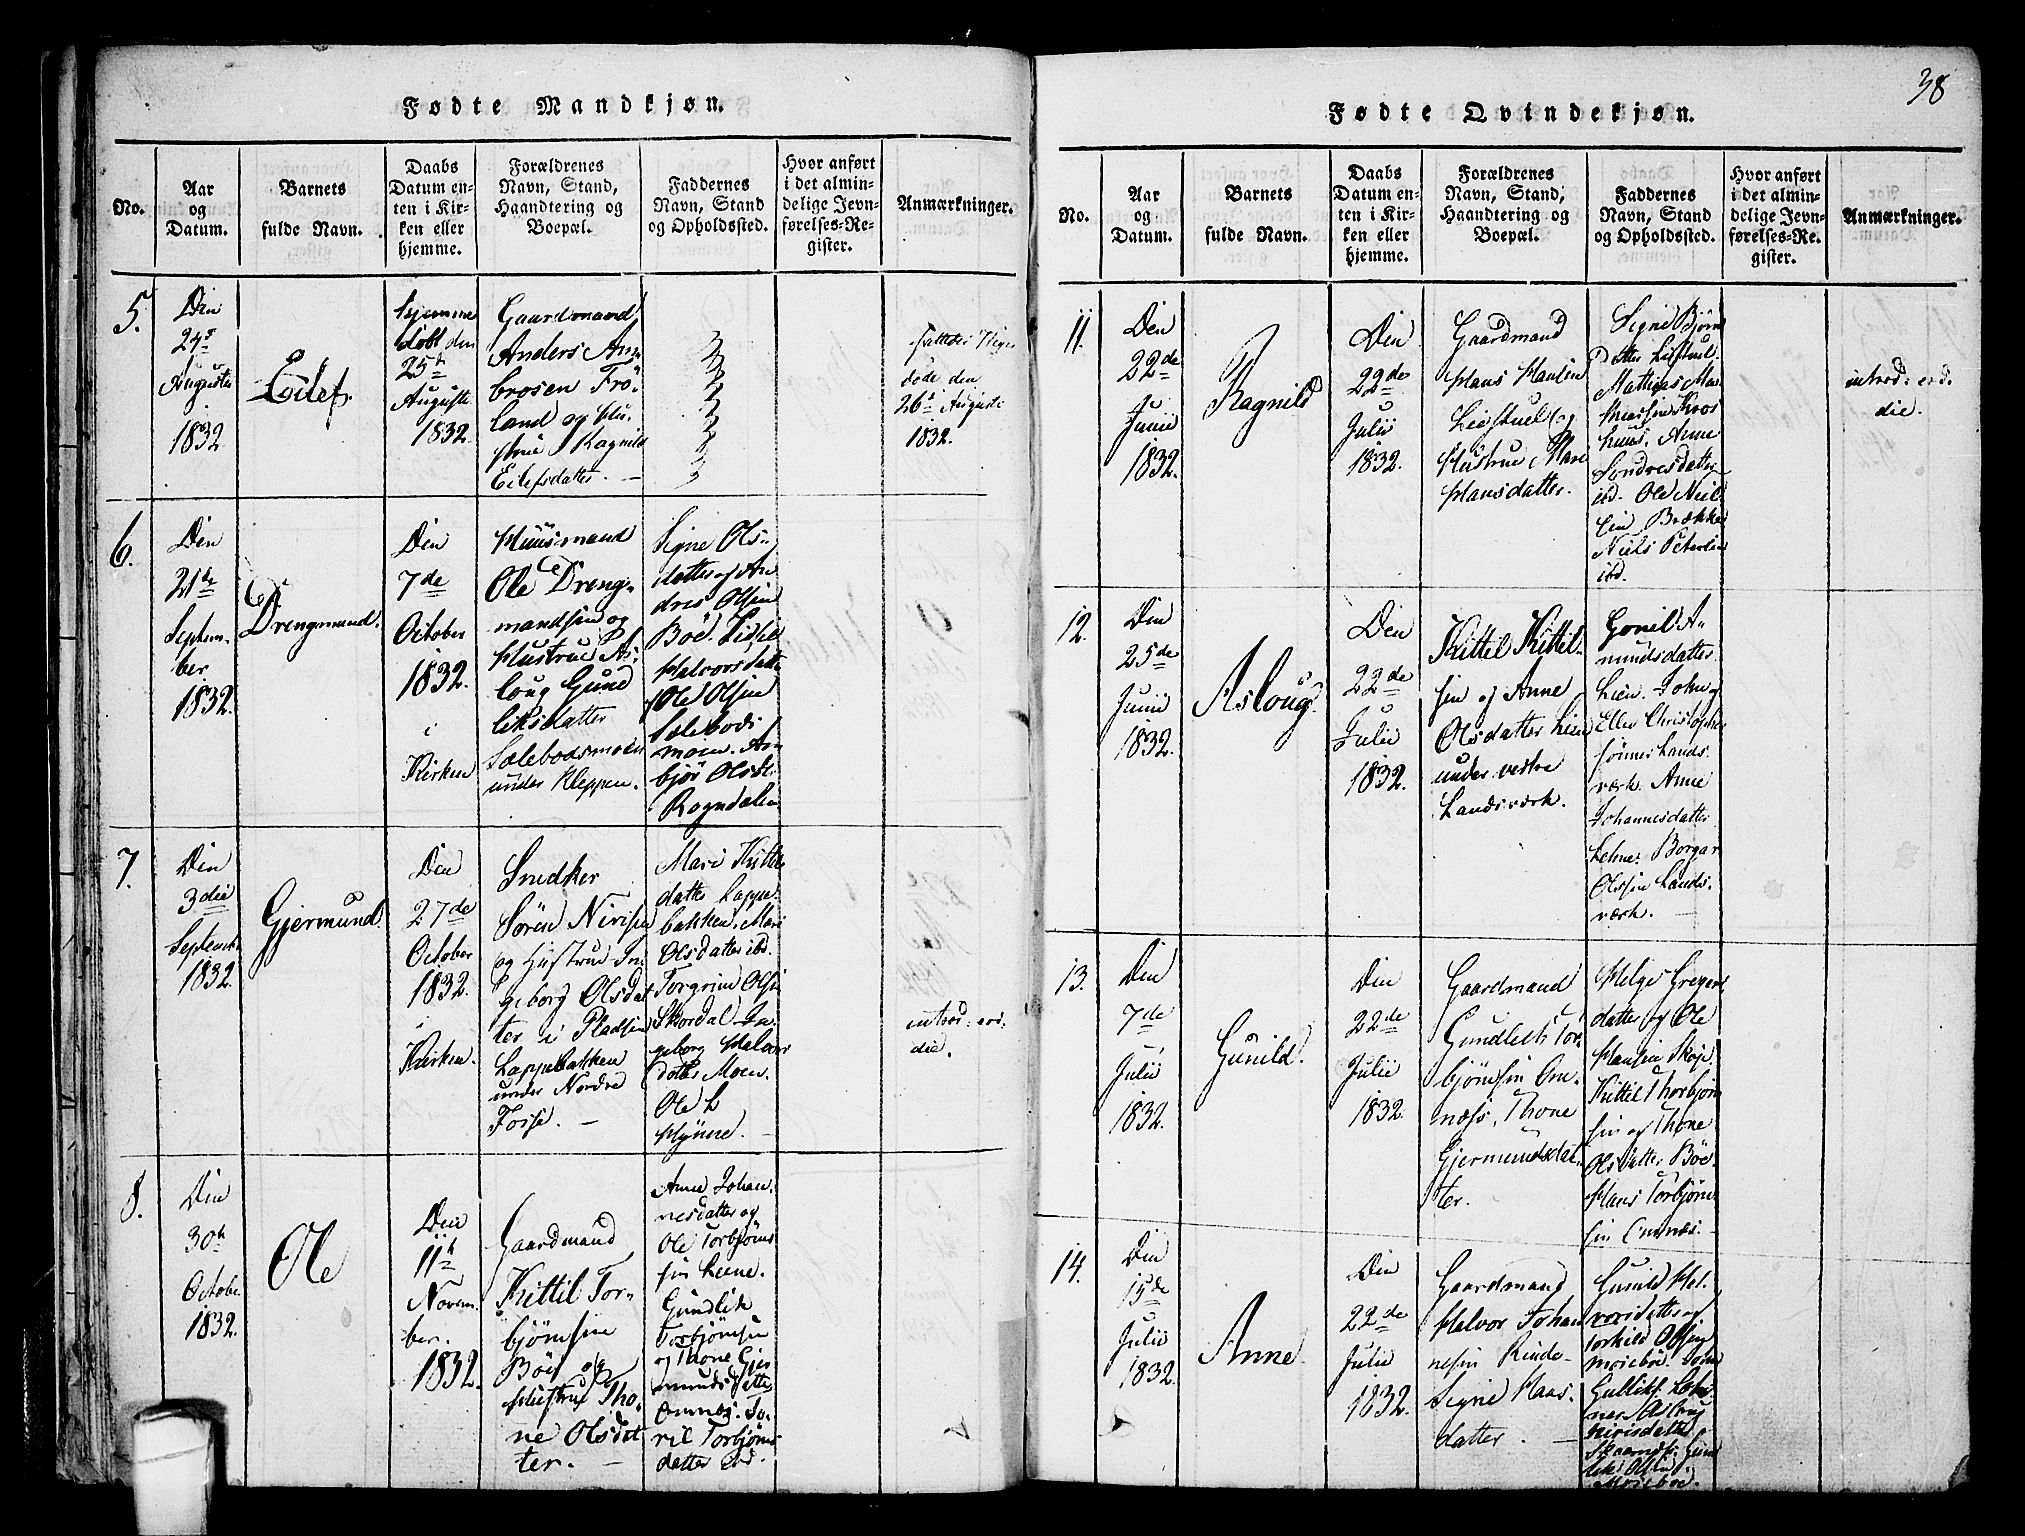 Fødte Mandkjøn.
No.
Aar
og
Datum.
Barnets
fulde Navn.
Daabs
Datum en-
ten i Kir-
ken eller
hjemme.
Forældrenes
Navn, Stand,
Haandtering og
Boepæl.
Faddernes
Navn, Stand
og Opholdssted.
Hvor anført
i det almin-
delige Jevn-
førelses-Re-
gister.
Anmærkninger.
5.
Den
Augusti
1832
Eilef.
Hjemme
døbt den
25
Augusti
1832.
Gaardmand
Anders Am-
brosen Frö-
land og Hu-
strue Ragnild
Eilefsdatter.
døde den
26 Augusti
1832.
6.
Den
21de
Septem-
ber
1832.
Drengmund.
Den
7de
October
1832.
i
Kirken
Huusmand
Ole Dreng-
mandsen og
Hustrue As-
loug Gund
leiksdatter
Sælebodsmoen
under Kleppen.
Signe Ols-
datter og An
dres Olsen
Böe.
Halvorsdatter
Ole Olsen
Sælebods
moen. An-
bjør Olsdt.
Rogndalen
7.
Den
3die
Septembr
1832.
Gjermund.
Den
27de
October
1832.
i
Kirken.
Snedker
Sören Nirisen
og Hustrue In
geborg Olsdat
ter i Pladsen
Lappebakken
under Nordre
Forse.
Mari Kittils
datter Lappe-
bakken. Mari
Olsdatter ibd.
Torgrim Olsen
Skordal In-
geborg Halvors
datter Moen.
Ole L
Hynne.
introd: erd:
die.
8.
Den
30
October
1832.
Ole
Den
11
Novem-
ber.
1832.
Gaardmand
Kittil Tor-
bjørnsen
Böe og
Hustrue Tho-
ne Olsdat
ter.
Anne Johan-
nesdatter og
Ole Torbjørns
sen Leene.
Gundlik
Torbjørnsen
og Thone Gjer
mundsdatter
Omnes. To-
ril Torbjørns
datter ibd.
38
Fødte Qvindekjøn.
No.
Aar
og
Datum.
Barnets
fulde Navn.
Daabs
Datum en-
ten i Kir-
ken eller
hjemme.
Forældrenes
Navn, Stand,
Haandtering og
Boepæl.
Faddernes
Navn, Stand
og Opholdssted.
Hvor anført
i det almin-
delige Jevn-
førelses-Re-
gister.
Anmærkninger.
11.
Den
22de
Junii
1832.
Ragnild
Den
22de
Julii
1832.
Gaardmand
Hans Hansen
Liestuel og
Hustrue Mari
Hansdatter.
Signe Bjørns
Datter Liestuel.
Mathias Mar
huus. Anne
Sondresdatter
ibd. Ole Niel
sen Brække
Niels Petersen
ibd.
introd: erd.
die.
12.
Den
25de
Junii
1832.
Asloug.
Den
22de
Julii
1832.
Kittel Kittel-
sen og Anne
Olsdatter Lien
under vestre
Landsværk.
Gonil A-
mundsdatter
Lien. John og
Ellev Christopher
sønner Lands-
værk. Anne
Johannesdatter
Lehne. Borgar
Olssen Lands-
værk.
13.
Den
7de
Julii
1832.
Gunild.
Den
22de
Julii
1832.
Gaardmand
Gundleik Tor-
bjørnsen Om-
næss, Thone
Gjermundsdat-
ter.
Helge Gregers
datter og Ole
Hansen Skoje
Kittil Thorbjørn
sen og Thone
Olsdatter Böe.
Hans Torbjørn
sen Omnæs.
14.
Den
15de
Julii
1832.
Anne.
Den
22de
Julii
1832.
Gaardmand
Halvor Johan
nesen Rinde-
Signe Haas-
datter.
Gunild Hal-
vorsdatter og
Torkild Olsen
Moeeböe.
Gullik
datter
Olsen
Moeeböe.